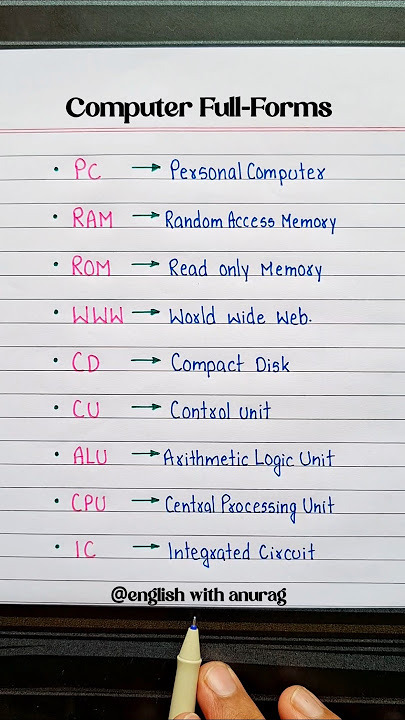 Computer Full-Forms
• PC → Personal Computer
• RAM → Random Access Memory
• ROM → Read only Memory
• WWW → World wide Web.
• CD → Compact Disk
• CU → Control unit
• ALU → Arithmetic Logic Unit
• CPU → Central Processing Unit
• IC → Integrated Circuit
@english with anurag